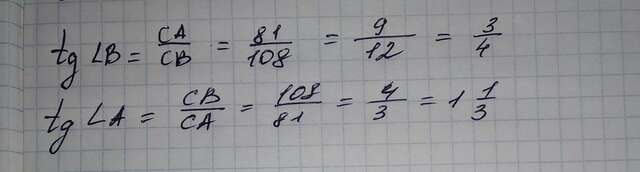 tg ∠B = CA/CB = 81/108 = 9/12 = 3/4
tg ∠A = CB/CA = 108/81 = 4/3 = 1 1/3